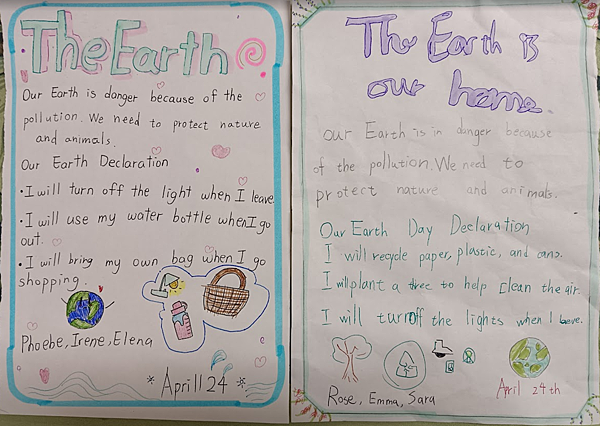 The Earth
Our Earth is danger because of the
pollution. We need to protect nature
and animals.
Our Earth Declaration
•I will turn off the light when I leave.
•I will use my water bottle when I go
out.
•I will bring my own bag when I go
shopping.
Phoebe, Irene, Elena
*Aprill 24*
The Earth is
our home.
our Earth is in danger because
of the pollution. We need to
protect nature and animals.
Our Earth Day Declaration
I will recycle paper, plastic, and cans.
I will plant a tree to help clean the air.
I will turn off the lights when I leave.
Rose, Emma, Sara
April 24th